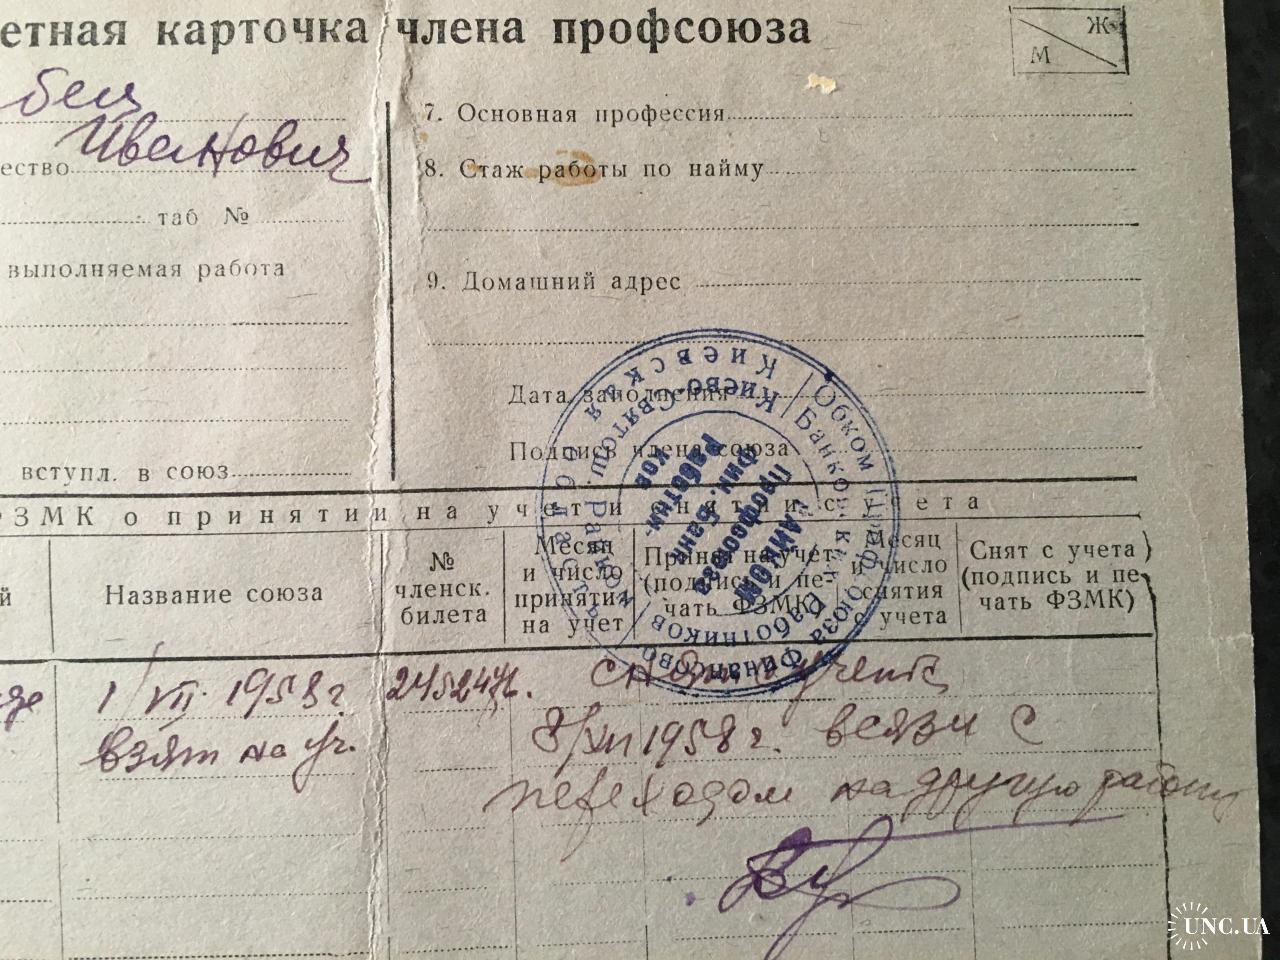 етная карточка члена профсоюза
Ж
М
бец
Иванович
ество
таб №
выполняемая работа
вступл. в союз
7. Основная профессия
8. Стаж работы по найму
9. Домашний адрес
Дата заполнения
Подпись члена союза
ФЗМК о принятии на учет и снятии с учета
й
Название союза
№ членск. билета
Месяц и число принятия на учет
Принят на учет (подпись и печать ФЗМК)
Месяц и число снятия с учета
Снят с учета (подпись и печать ФЗМК)
Обком Профсоюза Финансово
Банковских Работников
Киевская область
Киево-Святош. Район
Профсоюза
Фин. Банк
Работни-
ков
1/VII 1953г.
взят на уч.
снят с учета
8/XII 1958г. в связи с
переходом на другую работу
UNC.UA